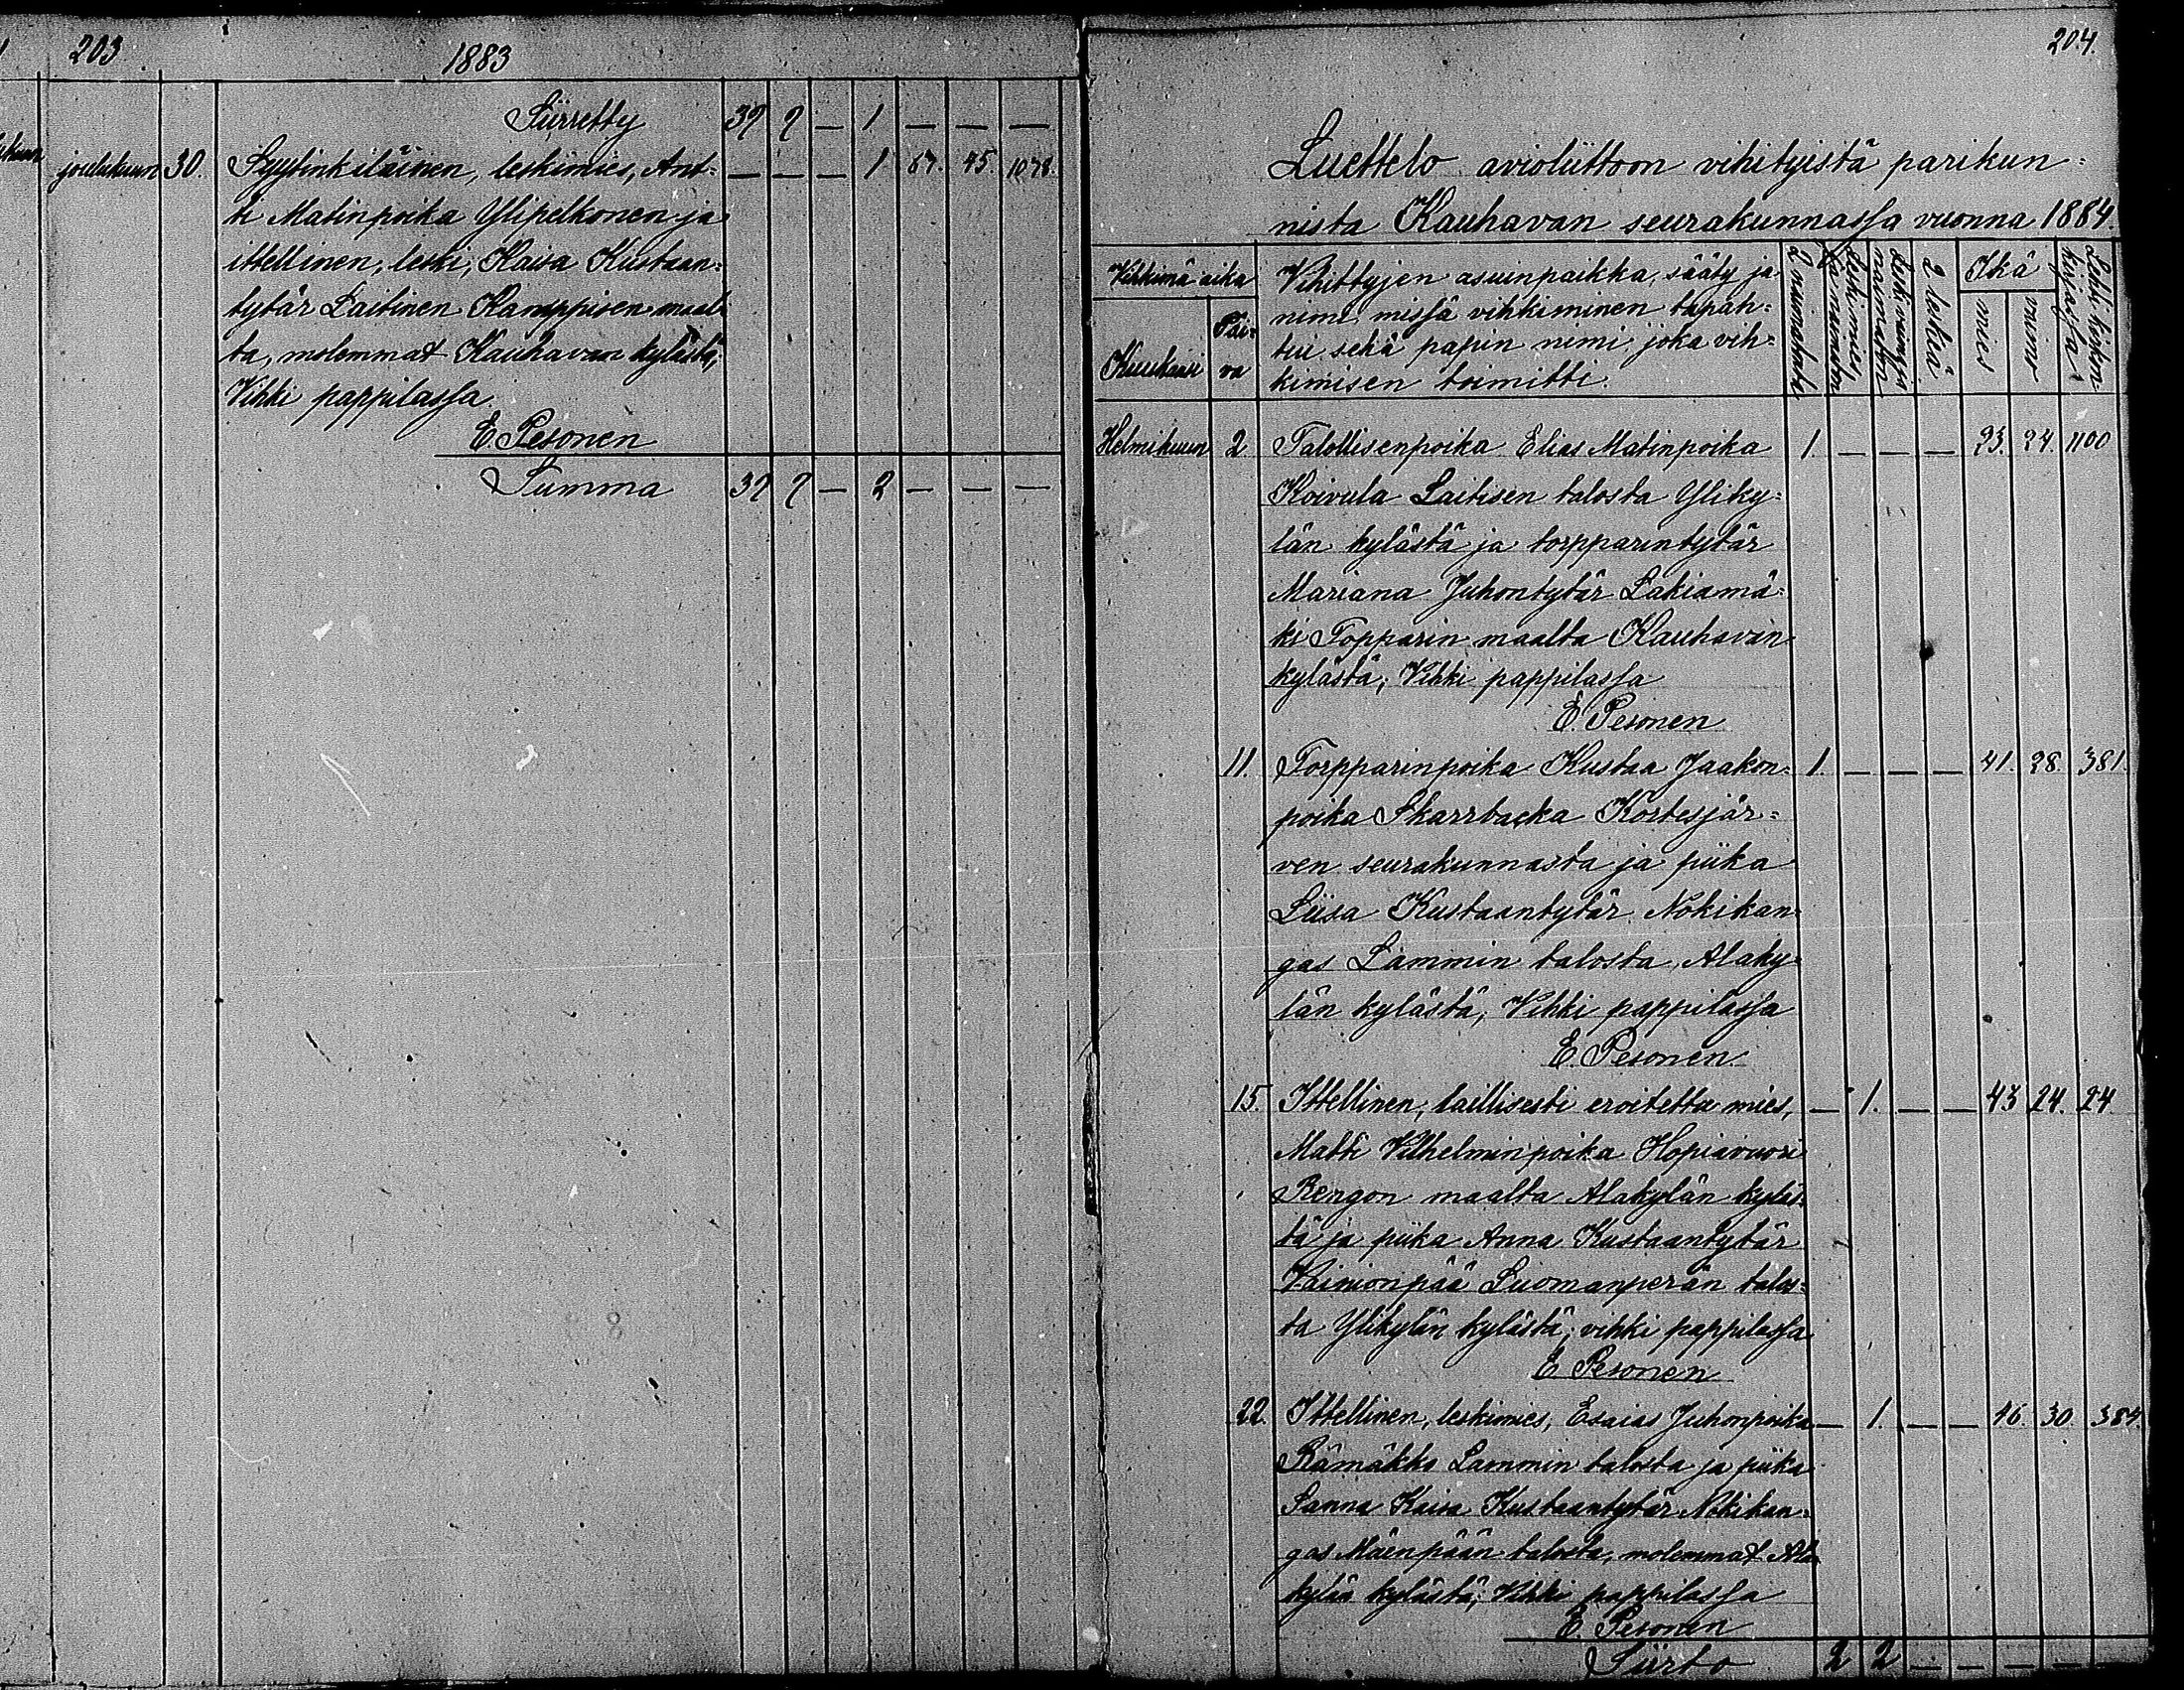 203
1883
Siirretty 39 9 — 1 — — —
joulukuun 30. Syytinkiläinen, leskimies, Ant= — — — 1 67. 45. 1078.
ti Matinpoika Ylipelkonen ja
ittellinen, leski, Kaisa Kustaan=
tytär Laitinen Kamppisen maal=
ta, molemmat Kauhavan kylästä;
Vihki pappilassa
E Pesonen
Summa 39 9 — 2 — — —
204.
Luettelo avioliittoon vihityistä parikun=
nista Kauhavan seurakunnassa vuonna 1884.
Vihkimä aika
Kuukausi
Päi=
vä
Vihittyjen asuinpaikka, sääty ja
nimi, missä vihkiminen tapah=
tui sekä papin nimi joka vih=
kimisen toimitti.
2 naimatonta
Leskimies
ja naimaton
Leskivaimo ja
naimaton
2 leskeä
Ikä
mies
vaimo
Lehti kirkon
kirjassa
Helmikuun 2 Talollisenpoika Elias Matinpoika 1. — — — 23. 24. 1100
Koivula Laitisen talosta Yliky=
län kylästä ja torpparintytär
Mariana Juhontytär Lakiamä=
ki Topparin maalta Kauhavan
kylästä; Vihki pappilassa
E. Pesonen
11. Torpparinpoika Kustaa Jaakon= 1. — — — 41. 28. 381.
poika Skarrbacka Kortesjär=
ven seurakunnasta ja piika
Liisa Kustaantytär Nokikan=
gas Lammin talosta, Alaky=
län kylästä; Vihki pappilassa
E. Pesonen
15. Ittellinen, laillisesti eroitettu mies, — 1. — — 43 24. 24
Matti Vilhelminpoika Hopiavuori
Rengon maalta Alakylän kyläs=
tä ja piika Anna Kustaantytär
Vaimonpää Luomanperän talos=
ta Ylikylän kylästä; vihki pappilassa
E. Pesonen
22. Ittellinen, leskimies, Esaias Juhonpoika — 1. — — 46. 30. 384.
Rämäkkö Lammin talosta ja piika
Sanna Kaisa Kustaantytär Nokikan=
gas Mäenpään talosta, molemmat Ala
kylän kylästä; Vihki pappilassa
E. Pesonen
Siirto 2 2 — — — — —